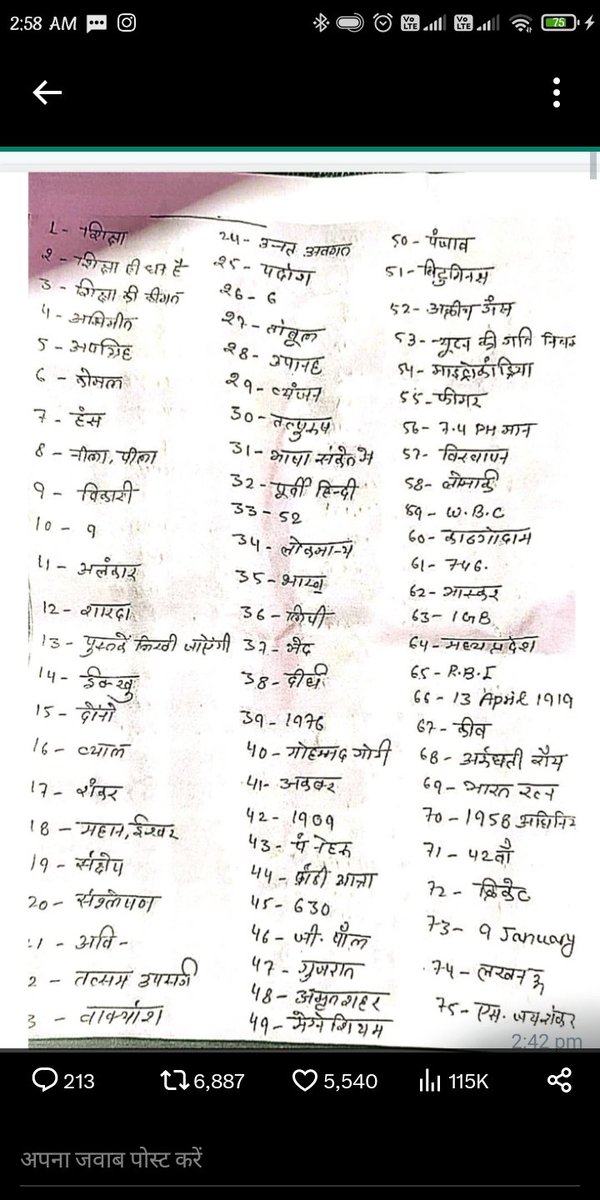 2:58 AM
VoLTE VoLTE 75
1- शिक्षा
2 - शिक्षा ही धन है
3 - शिक्षा की कीमत
4 -
5 -
6 - कोमल
7 - हंस
8 - नीला, पीला
9 - विकारी
10 - 9
11 - अलंकार
12 - शारदा
13 - पुस्तकें लिखी जाएंगी
14 - ईक्खु
15 - दोनों
16 - व्याल
17 - शंकर
18 - महान, ईश्वर
19 - संक्षेप
20 - संश्लेषण
1 - अवि -
2 - तत्सम उपसर्ग
3 - वाक्यांश
24 - अवगत
25 -
26 - 6
27 - तांबूल
28 - उपानह
29 - व्यंजन
30 - तत्पुरुष
31 - भाषा संकेत में
32 - पूर्वी हिन्दी
33 - 52
34 - लोकमान्य
35 -
36 - लिपी
37 - भेद
38 - दीर्घ
39 - 1976
40 - मोहम्मद गोरी
41 - अकबर
42 - 1909
43 - पं नेहरू
44 - दांडी यात्रा
45 - 630
46 - जी. पॉल
47 - गुजरात
48 - अमृत शहर
49 - मैग्नेशियम
50 - पंजाब
51 -
52 -
53 - न्यूटन की गति नियम
54 - माइटोकॉंड्रिया
55 - फीगर
56 - 7.4 PH मान
57 - विस्थापन
58 -
59 - W.B.C
60 - काठगोदाम
61 - 746.
62 - भास्कर
63 - 1GB
64 - मध्य प्रदेश
65 - R.B.I
66 - 13 April 1919
67 - कीव
68 - अरुंधती रॉय
69 - भारत रत्न
70 - 1958 अधिनि
71 - 42वाँ
72 - क्रिकेट
73 - 9 January
74 - लखनऊ
75 - एस. जयशंकर
2:42 pm
213 6,887 5,540 115K
अपना जवाब पोस्ट करें